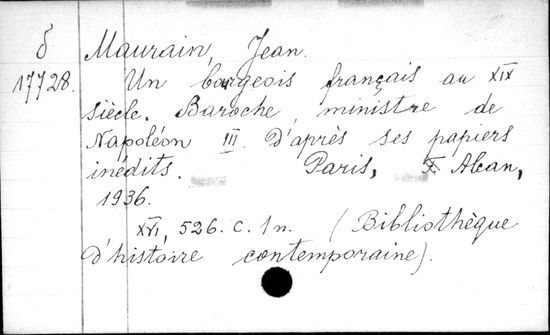 δ Maurain, Jean.
17728. Un bourgeois français au XIX
siècle. Baroche ministre de
Napoléon III. D'après ses papiers
inédits. Paris, F. Alcan,
1936.
XVI, 526. c. 1 n. (Bibliothèque
d'histoire contemporaine).